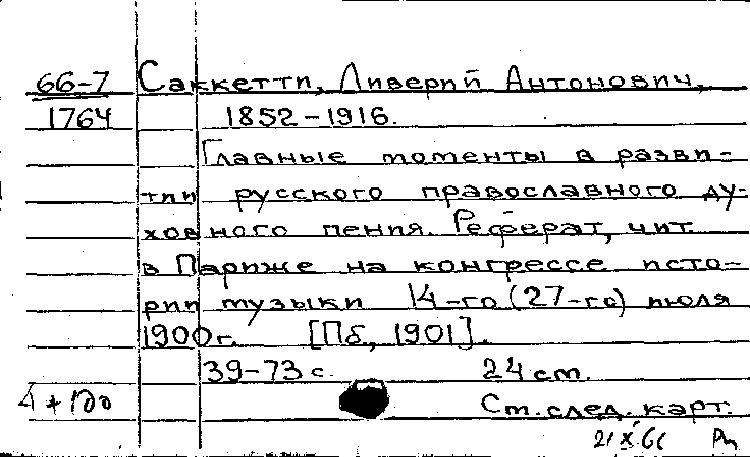 66-7 Саккетти, Ливерий Антонович,
1764 1852-1916.
Главные моменты в разви-
тии русского православного ду-
ховного пения. Реферат, чит.
в Париже на конгрессе исто-
рии музыки 14-го (27-го) июля
1900г. [Пб, 1901].
39-73 с. 24 ст.
Ст. след. карт.